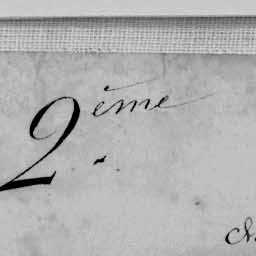 2ème.